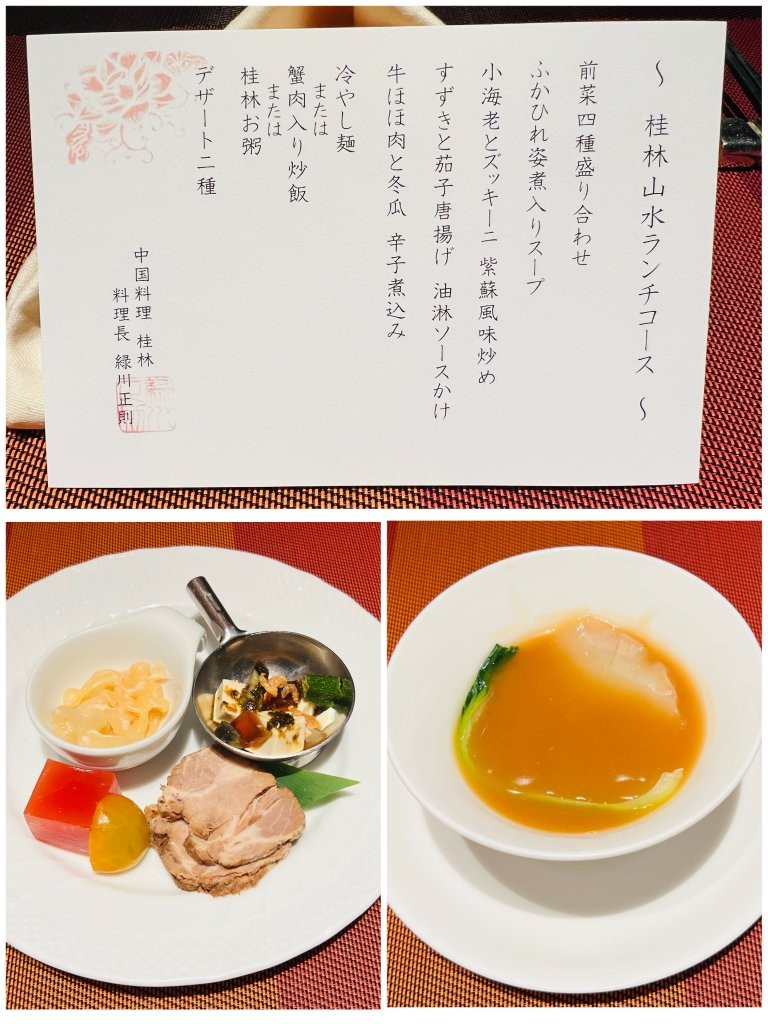 ～ 桂林山水ランチコース ～
前菜四種盛り合わせ
ふかひれ姿煮入りスープ
小海老とズッキーニ 紫蘇風味炒め
すずきと茄子唐揚げ 油淋ソースかけ
牛ほほ肉と冬瓜 辛子煮込み
冷やし麺
または
蟹肉入り炒飯
または
桂林お粥
デザート二種
中国料理 桂林
料理長 緑川正則